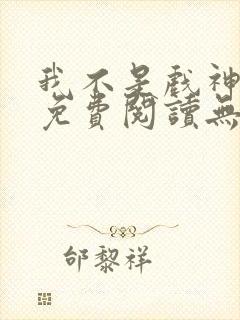 我不是戲神
免費閱讀無
邰黎祥